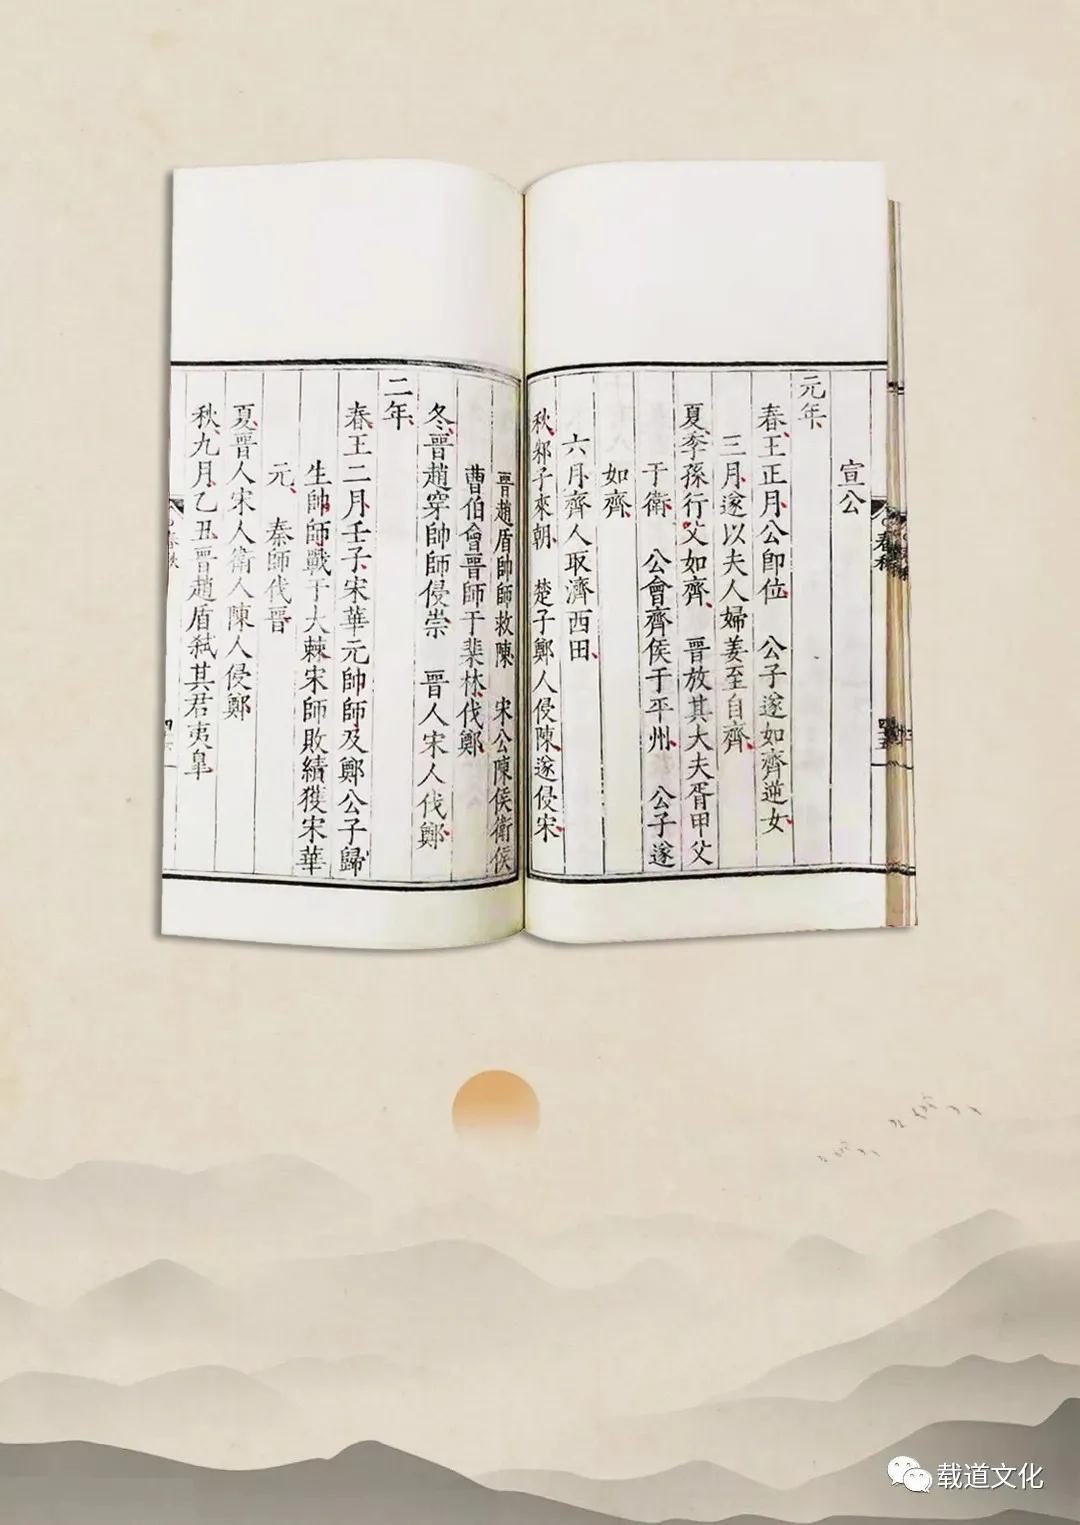 宣公
元年
春王正月公卽位　公子遂如齊逆女
三月遂以夫人婦姜至自齊
夏季孫行父如齊　晉放其大夫胥甲父
于衛　公會齊侯于平州　公子遂
如齊
六月齊人取濟西田
秋邾子來朝　楚子鄭人侵陳遂侵宋
晉趙盾帥師救陳　宋公陳侯衛侯
曹伯會晉師于棐林伐鄭
冬晉趙穿帥師侵崇　晉人宋人伐鄭
二年
春王二月壬子宋華元帥師及鄭公子歸
生帥師戰于大棘宋師敗績獲宋華
元　秦師伐晉
夏晉人宋人衛人陳人侵鄭
秋九月乙丑晉趙盾弒其君夷皐
春秋
载道文化